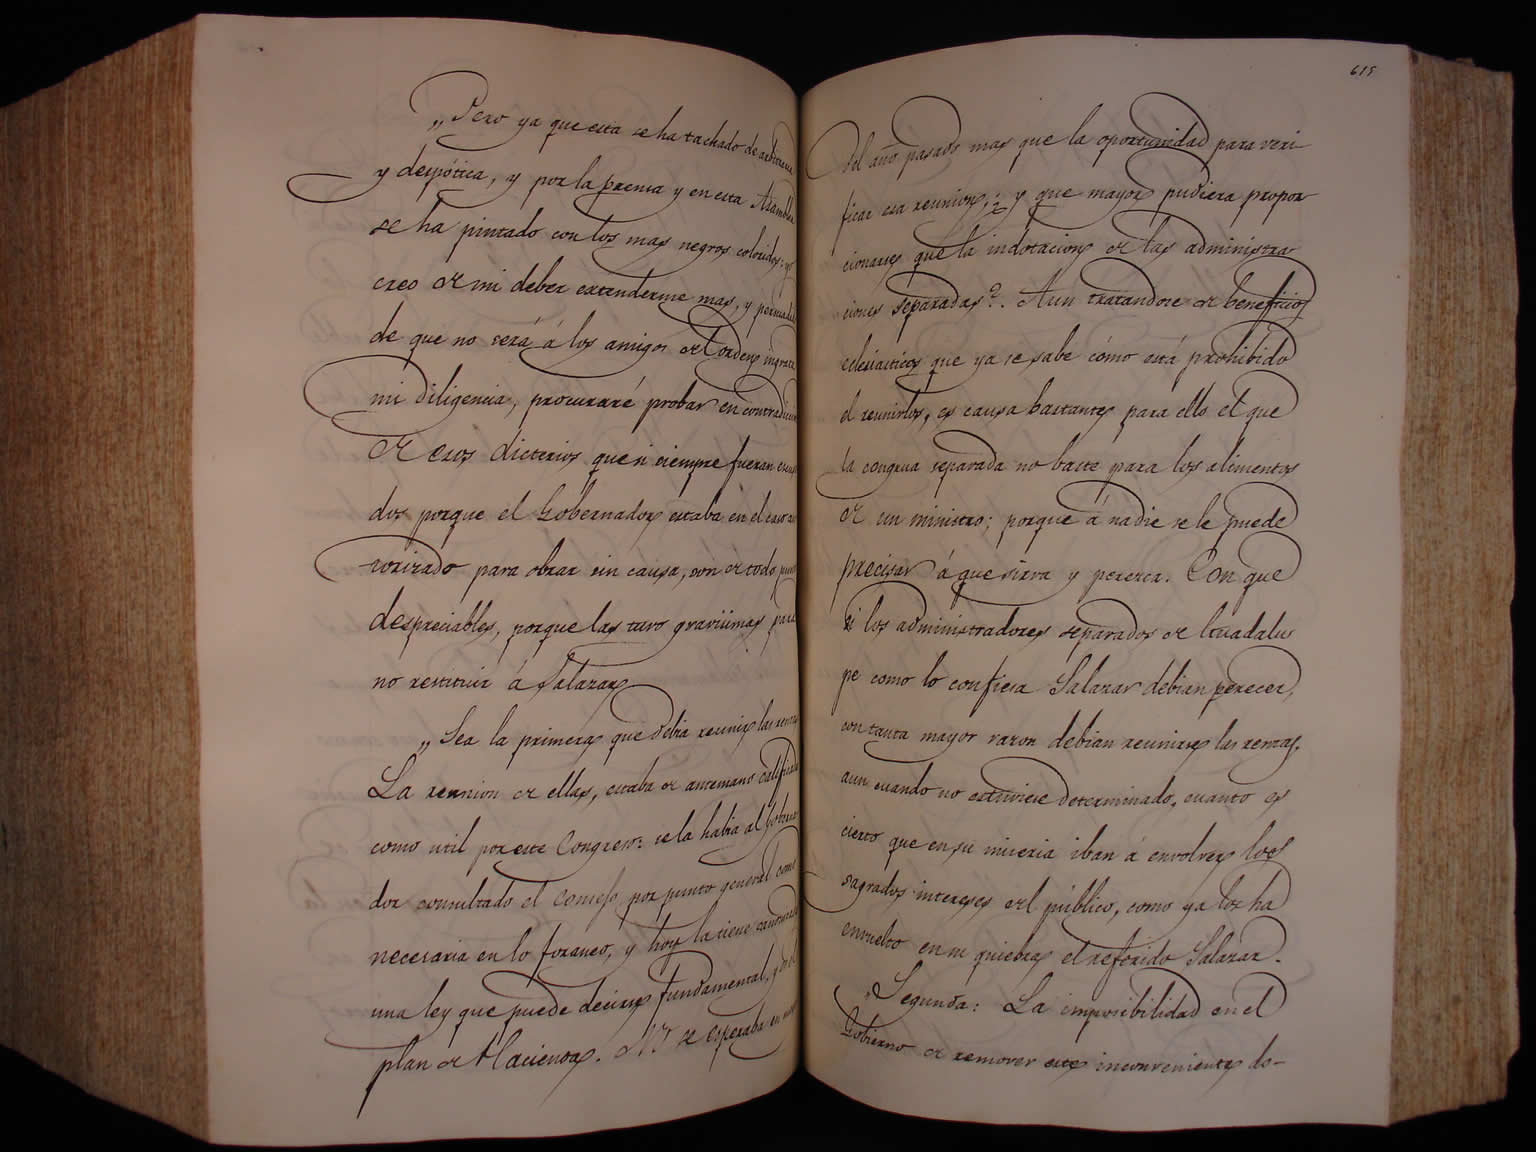 „Pero ya que esta se ha tachado de arbitraria
y despótica, y por la prensa y en esta Asamblea
se ha pintado con los mas negros coloridos: yo
creo de mi deber extenderme mas, y persuadido
de que no será á los amigos del orden ingrata
mi diligencia, procuraré probar en contradiccion
de esos dicterios que si siempre fueran
dos porque el Gobernador estaba en el caso au
torizado para obrar sin causa, son de todo punto
despreciables, porque las tuvo gravisimas para
no restituir á Salazar.
„Sea la primera que debia reunir las rentas.
La reunion de ellas, estaba de antemano calificada
como util por este Congreso: se la habia al Goberna
dor consultado el Consejo por punto general como
necesaria en lo foraneo, y hoy la tiene sancionada
una ley que puede decirse fundamental, y es el
plan de Hacienda. No se esperaba en mayo
615
del año pasado mas que la oportunidad para veri-
ficar esa reunion; ¿y que mayor pudiera propor
cionarse que la indotacion de las administra
ciones separadas? Aun tratandose de beneficios
eclesiasticos que ya se sabe cómo está prohibido
el reunirlos, es causa bastante para ello el que
la congrua separada no baste para los alimentos
de un ministro; porque á nadie se le puede
precisar á que sirva y perezca. Con que
si los administradores separados de Guadalu
pe como lo confiesa Salazar debian perecer,
con tanta mayor razon debian reunirse las rentas,
aun cuando no estuviese determinado, cuanto es
cierto que en su miseria iban á envolver los
sagrados intereses del público, como ya los ha
envuelto en su quiebra el referido Salazar.
„Segunda: La imposibilidad en el
Gobierno de remover este inconveniente do-